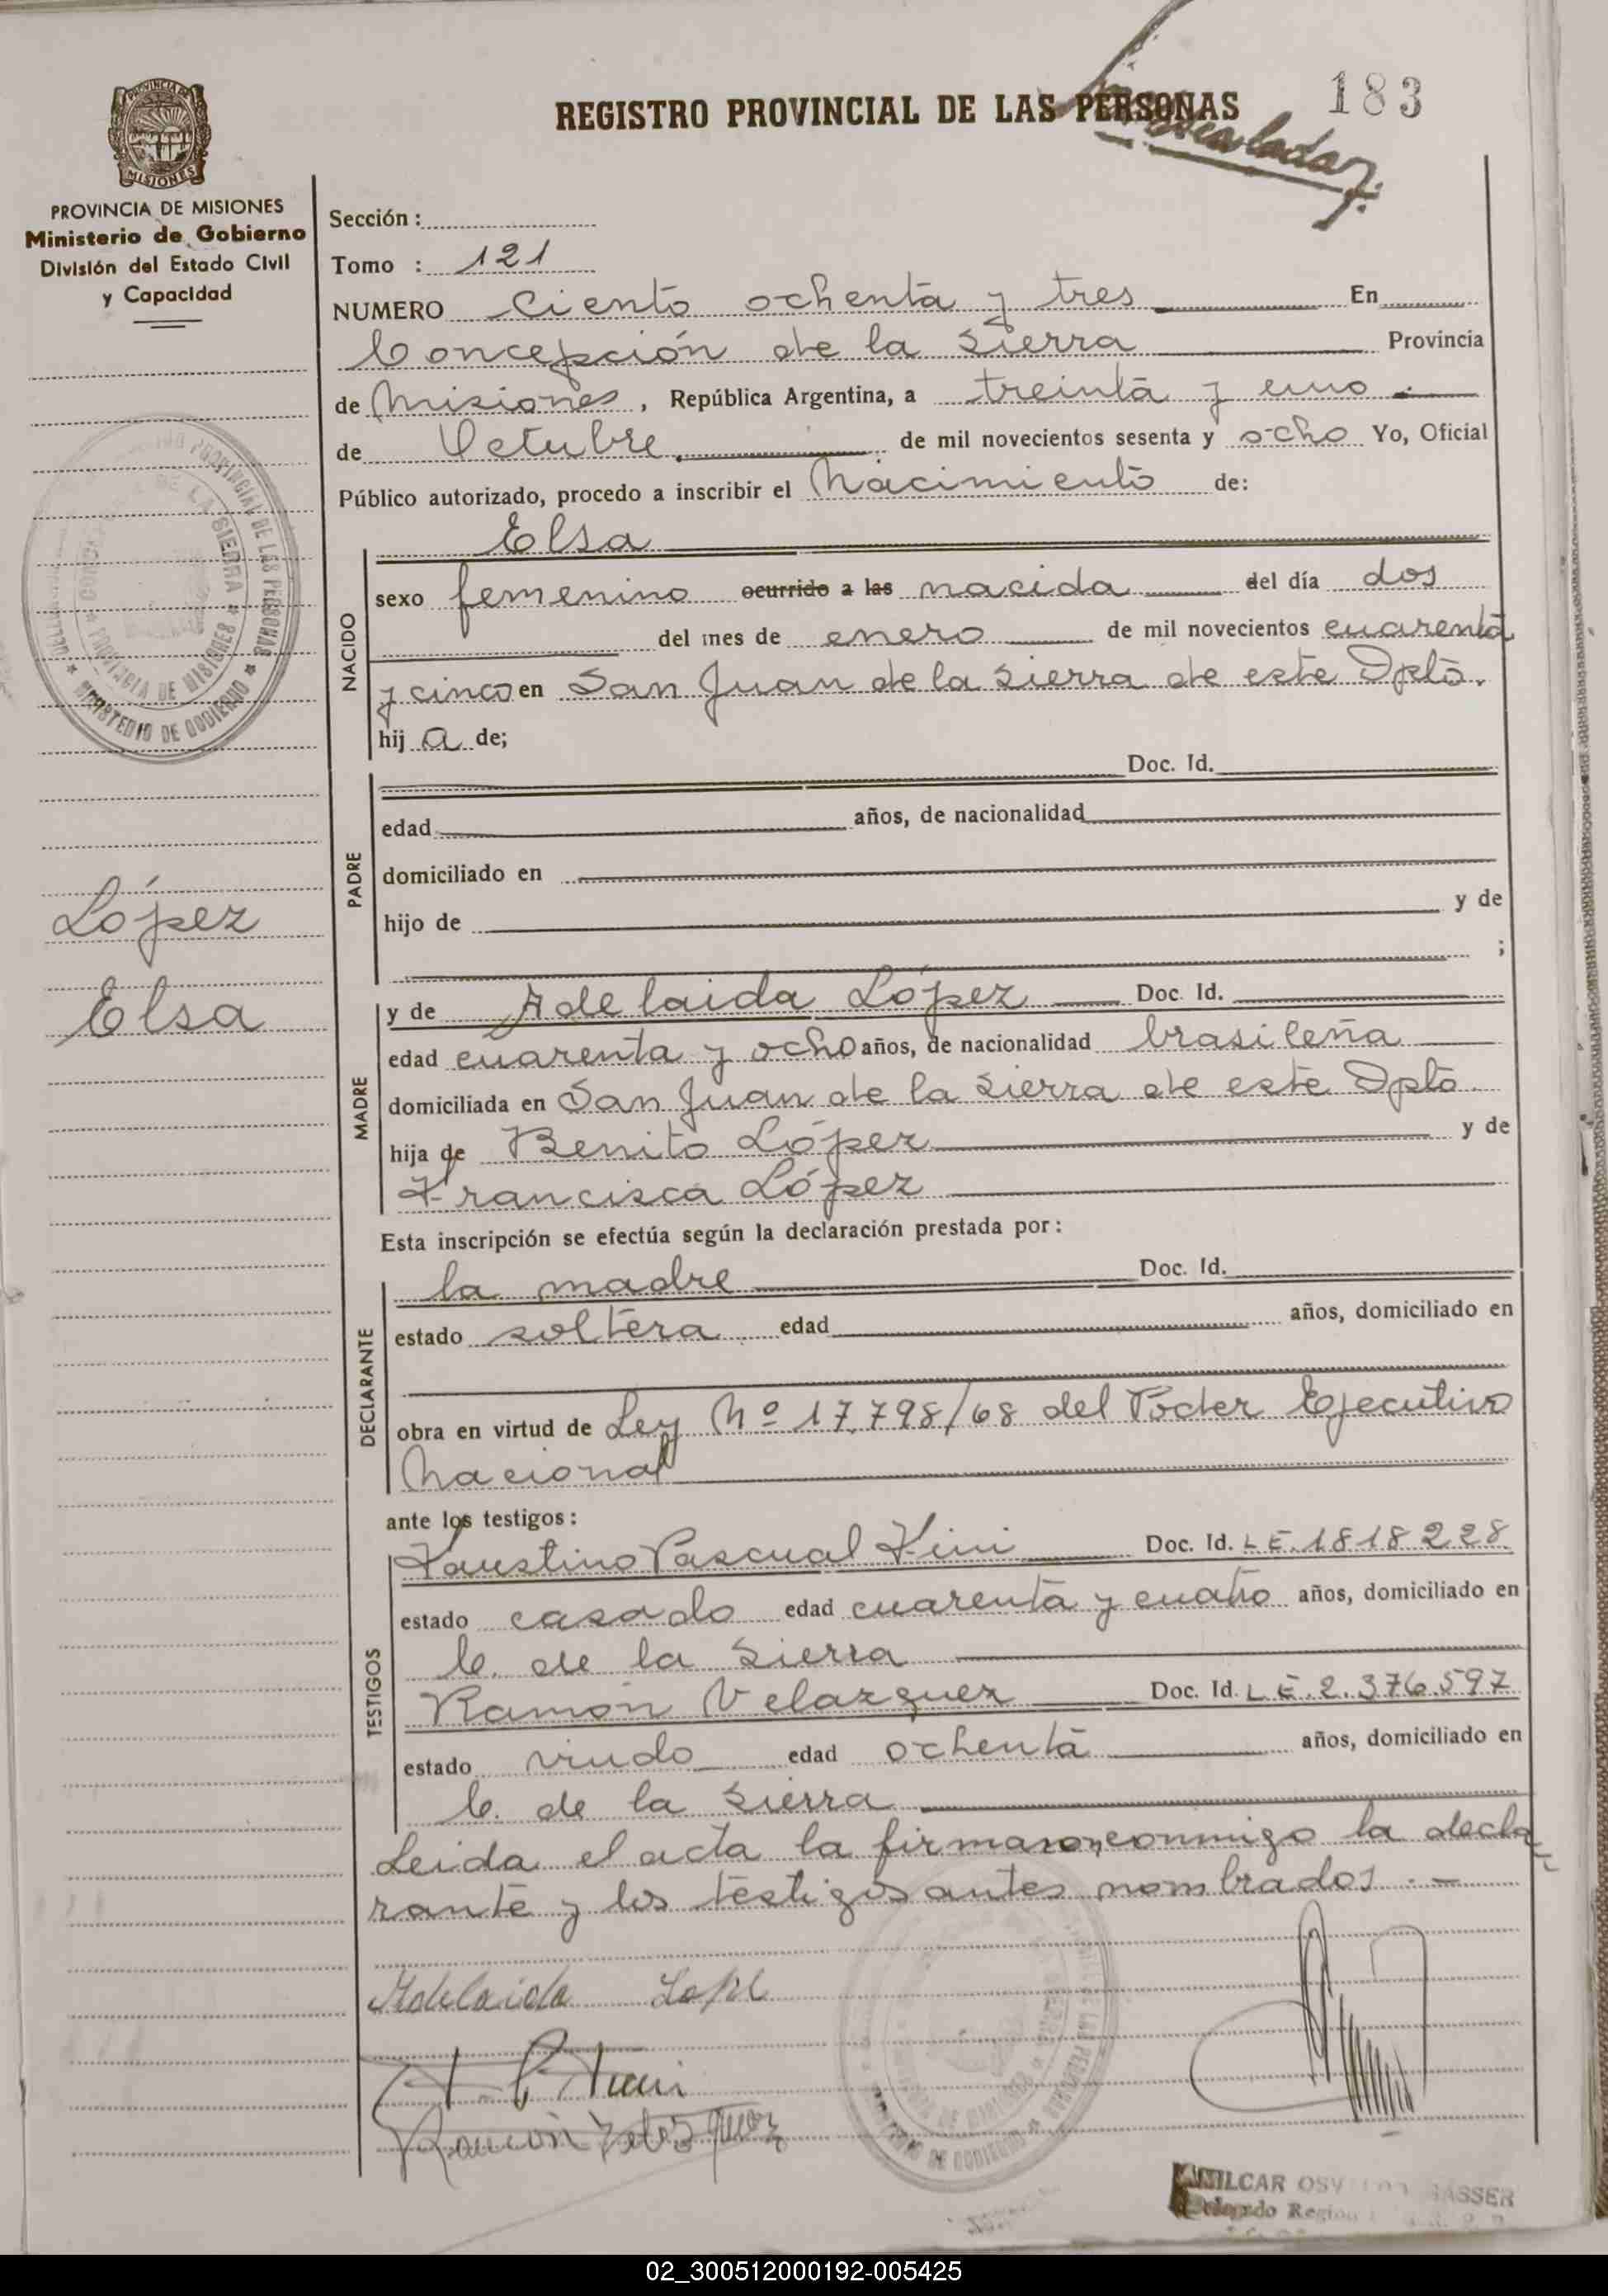 REGISTRO PROVINCIAL DE LAS PERSONAS
183
MISIONES
PROVINCIA DE MISIONES
Ministerio de Gobierno
División del Estado Civil
y Capacidad
Sección :
Tomo : 121
NUMERO Ciento ochenta y tres En
Concepción de la Sierra Provincia
de Misiones, República Argentina, a treinta y uno
de Octubre. de mil novecientos sesenta y ocho Yo, Oficial
Público autorizado, procedo a inscribir el Nacimiento de:
Elsa
NACIDO
sexo femenino ocurrido a las nacida del día dos
del mes de enero de mil novecientos cuarenta
y cinco en San Juan de la Sierra de este Dpto.
hij a de;
PADRE
Doc. Id.
edad años, de nacionalidad
domiciliado en
hijo de y de
;
López
Elsa
MADRE
y de Adelaida López Doc. Id.
edad cuarenta y ocho años, de nacionalidad brasileña
domiciliada en San Juan de la Sierra de este Dpto.
hija de Benito López y de
Francisca López
Esta inscripción se efectúa según la declaración prestada por:
DECLARANTE
la madre Doc. Id.
estado soltera edad años, domiciliado en
obra en virtud de Ley Nº 17.798/68 del Poder Ejecutivo
Nacional
ante los testigos:
TESTIGOS
Faustino Pascual Doc. Id. L E. 1818228
estado casado edad cuarenta y cuatro años, domiciliado en
C. de la Sierra
Ramón Velazquez Doc. Id. L E. 2.376.597
estado viudo edad ochenta años, domiciliado en
C. de la Sierra
Leida el acta la firmaron, conmigo la decla
rante y los testigos antes nombrados. -
Adelaida
Ramón
PROVINCIA DE MISIONES
MINISTERIO DE GOBIERNO
AMILCAR
02_300512000192-005425